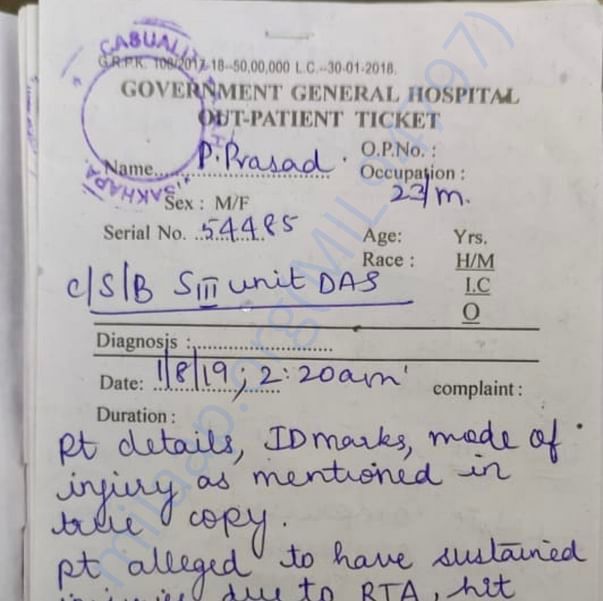 CASUALIT
G.R.P.K. 108/2017-18--50,00,000 L.C.--30-01-2018.
GOVERNMENT GENERAL HOSPITAL
OUT-PATIENT TICKET
Name.....P. Prasad.....
O.P.No. :
Occupation :
Sex : M/F
23/m.
Serial No. ..54485
Age: Yrs.
Race : H/M
I.C
O
c/s/B SIII unit DAS
Diagnosis :........................
Date: 1/8/19; 2:20am complaint :
Duration :
Pt details, ID marks, mode of
injury as mentioned in
true copy.
pt alleged to have sustained
injuries due to RTA, hit
milaap.org(MIL94797)